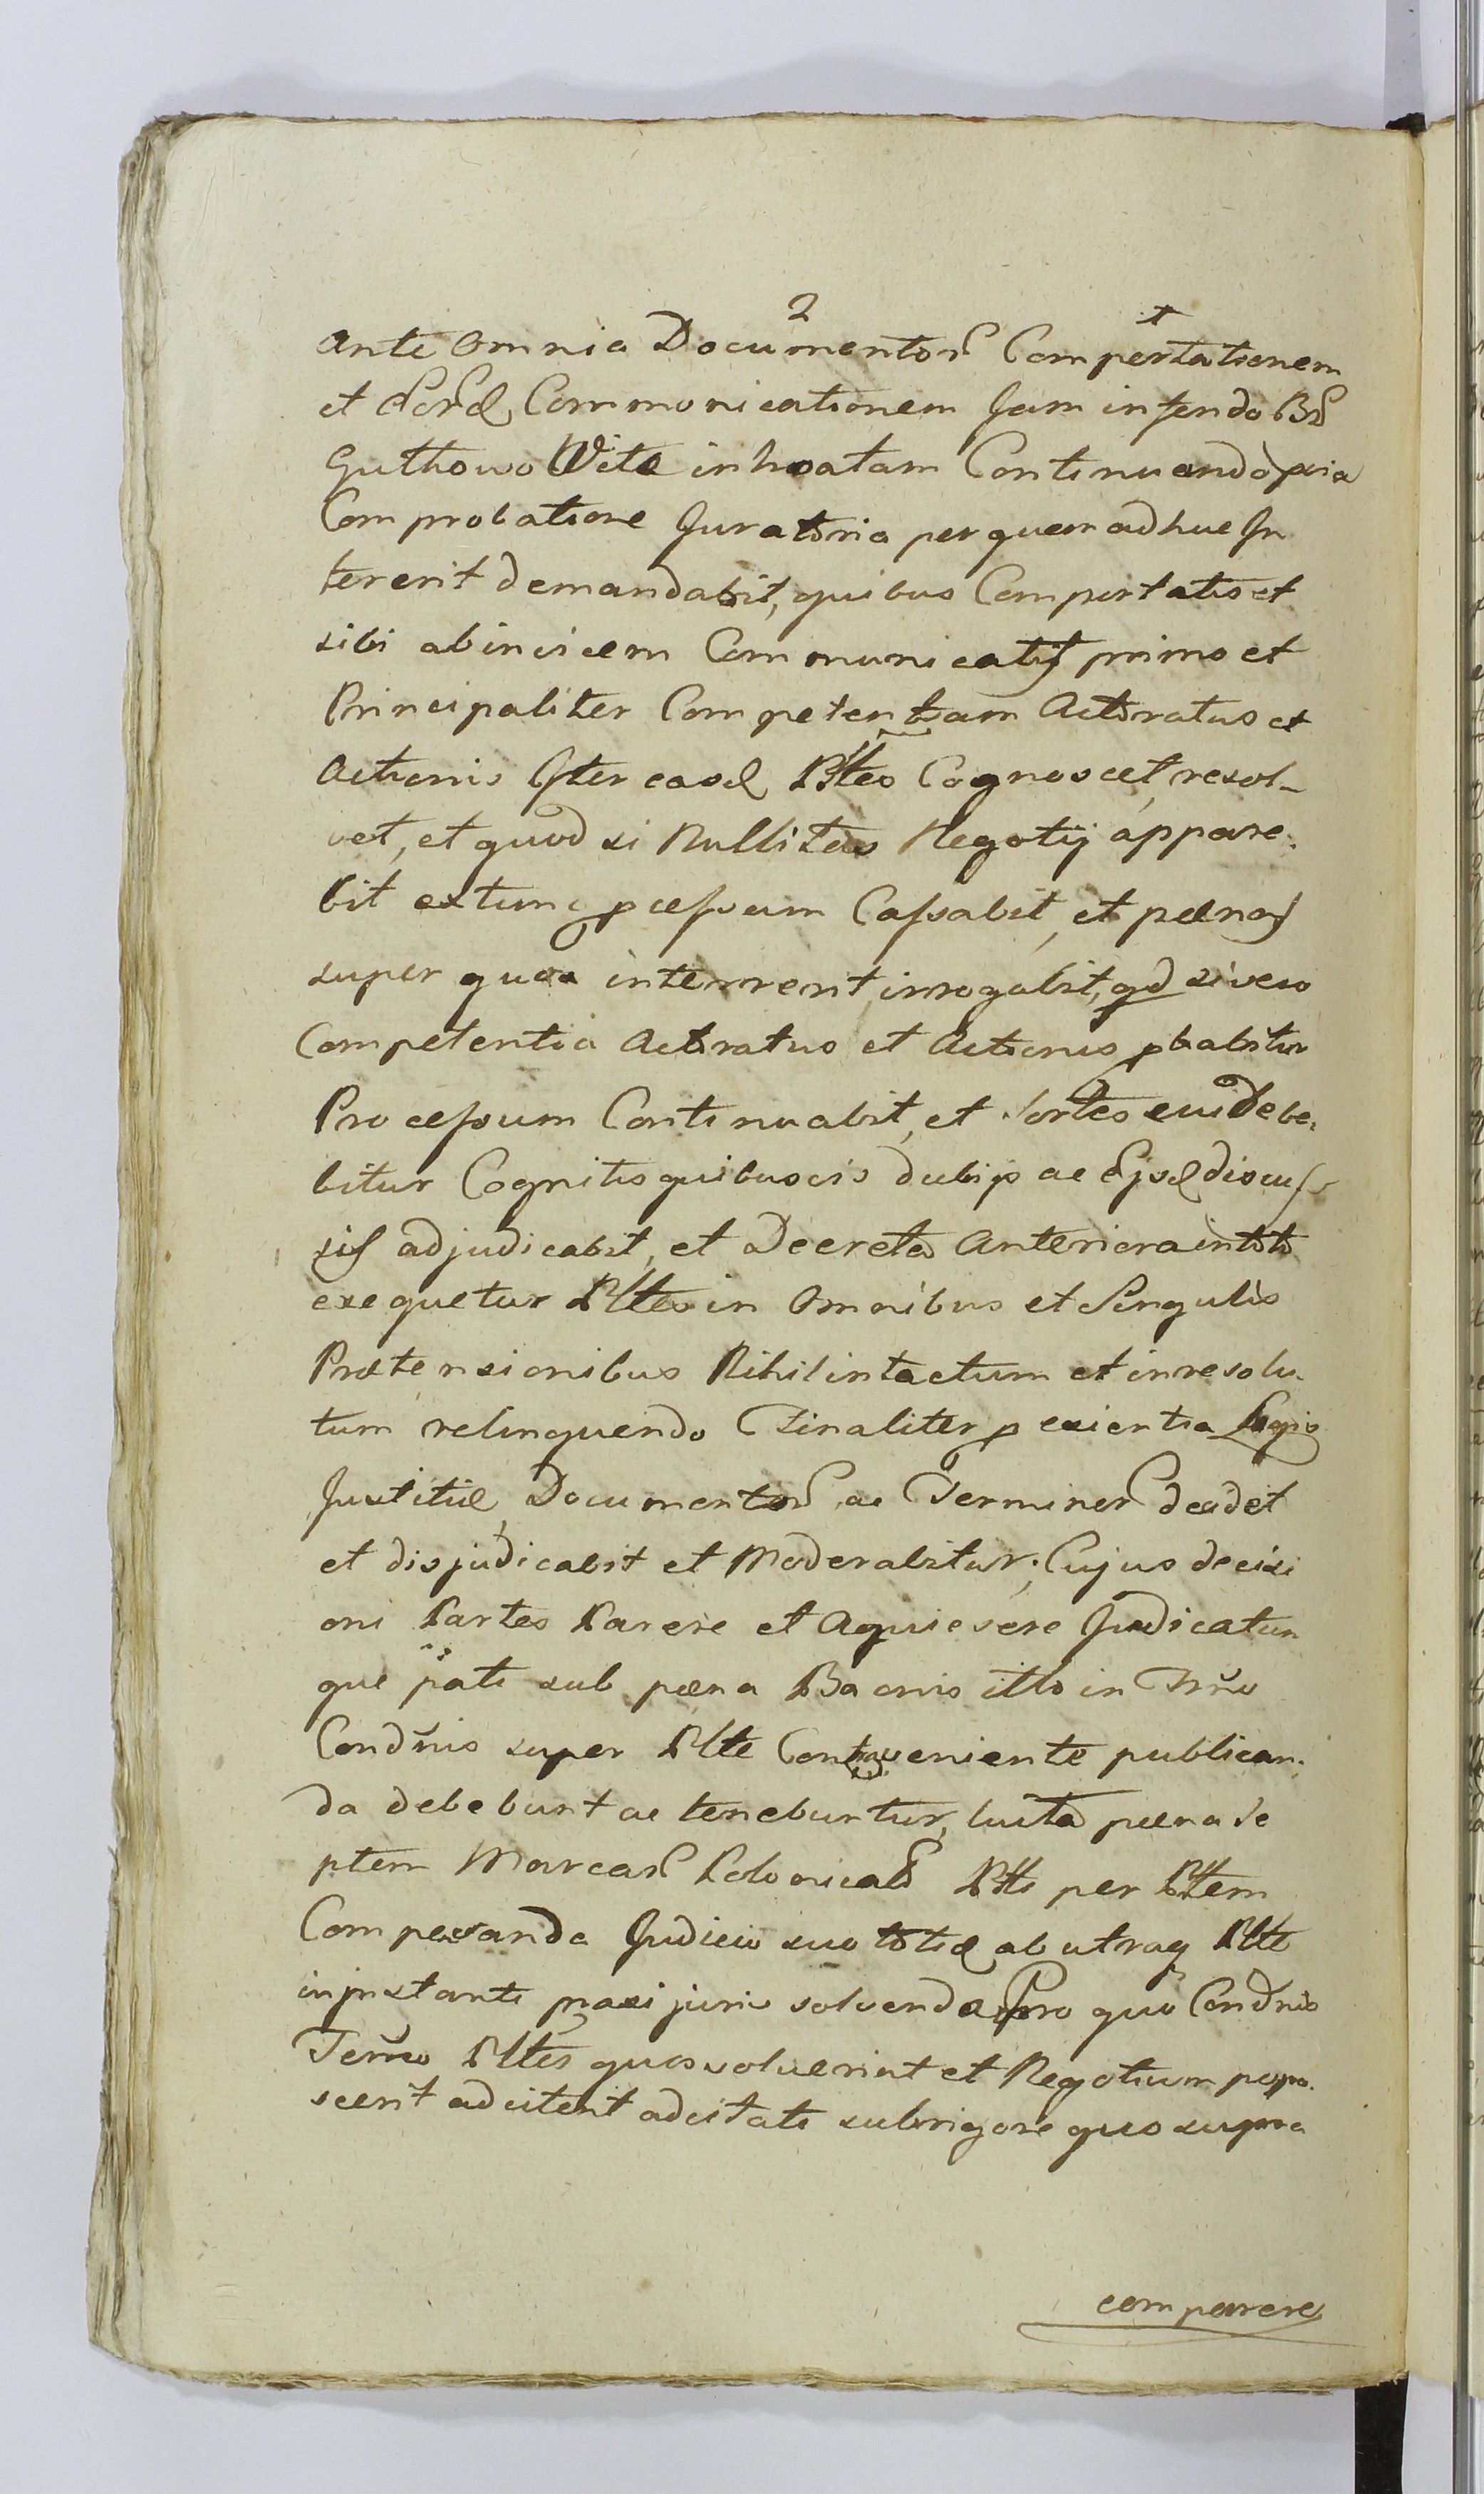 2
Ante Omnia Documentor Comportationem
et Eord Communicationem Jam in fundo Br
Guthowo Vite inhoatam Continuando pvia
Comprobatione Juratoria per quem adhuc In
tererit demandabit, quibus Comportatis et
sibi abinvicem Communicatis primo et
Principaliter Competentiam Actoratus et
Actionis Inter easd Ptes Cognoscet, resol-
vet, et quod si Nullitas Negotij appare-
bit extunc pcessum Cassabit, et pænas
super quas intererent irrogabit, qd si vero
Competentia Actoratus et Actionis pbabitur
Processum Continuabit, et Sortes cui debe-
bitur Cognitis quibusvis dubijs ac Ejsd discus
sis adjudicabit, et Decreta Anteriora in toto
exequetur Ptes in Omnibus et Singulis
Prætensionibus Nihil intactum et inresolu-
tum relinquendo Finaliter p exientia Legis
Justitiæ, Documentor ac Terminor decidet
et disjudicabit et Moderabitur; Cujus decisi
oni Partes Parere et Aquiescere Judicatum
que pati sub pæna Baonis illo in Trno
Condnis super Pte Contraveniente publican-
da debebunt ac tenebuntur, luita pæna Se
ptem Marcar Polonicalr Pti per Ptem
Compexanda Judicio suo toties ab utraq Pte
in instanti praxi juris solvenda Pro quo Condnis
Termo Ptes quos voluerint et Negotium popo-
scerit adcitent adcitati sub rigore quo supra
comparere